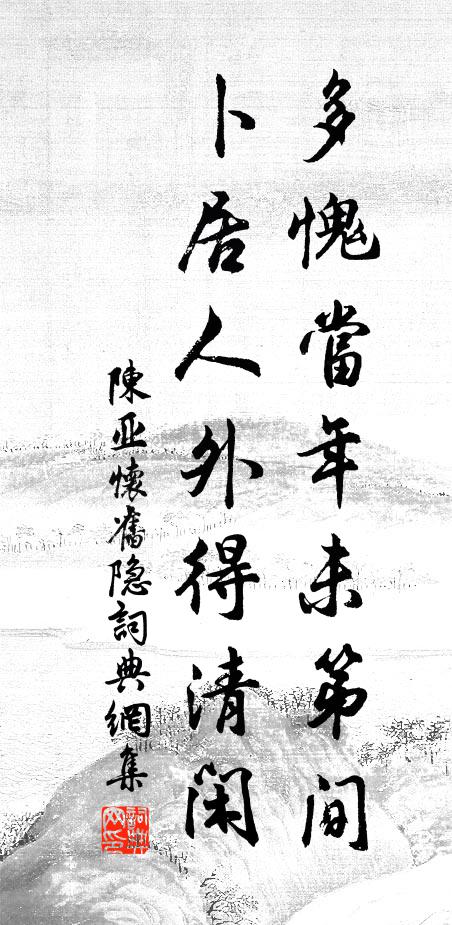 多愧當年未第間
卜居人外得清閑
陳亚懷舊隐詞典網集